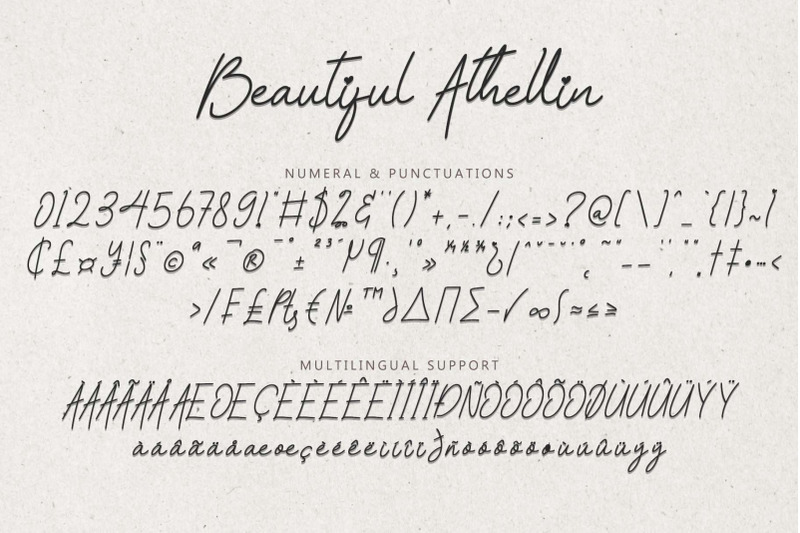 Beautiful Athellin
NUMERAL & PUNCTUATIONS
0123456789!"#$%&'()*+,-./:;<=>?@[\]^_`{|}~¡
₵£¤¥¦§¨©ª«¬®¯°±²³´µ¶·¸¹º»¼½¾¿/ˆˇ˘˙˚˛˜˝–—‘’‚“”„†‡•…‹
›⁄₣₤₧€№™∂∆∏∑−√∞∫≈≤≥
MULTILINGUAL SUPPORT
ÀÁÂÃÄÅÆŒÇÈÉÊËÌÍÎÏÐÑÒÓÔÕÖØÙÚÛÜÝŸ
àáâãäåæœçèéêëìíîïðñòóôõöøùúûüýÿ